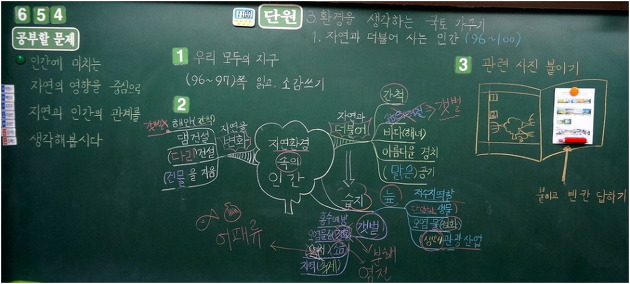 6 5 4
단원 3. 환경을 생각하는 국토 가꾸기
1. 자연과 더불어 사는 인간 (96~100)
공부할 문제
인간에 미치는
자연의 영향을 중심으로
지연과 인간의 관계를
생각해봅시다
1 우리 모두의 지구
(96~97)쪽 읽고 소감쓰기
2
해안(간척)
댐건설
(다리)건설
(건물)을 지음
자연을
변화
자연환경
속의
인간
자연과
더불어
간척
갯벌
바다(해녀)
아름다운 경치
(맑은)공기
습지
늪
저수지역할
생물
오염물(정화)
관광산업
갯벌
홍수예방
어패류
염전
3 관련 사진 붙이기
붙이고 빈칸 답하기